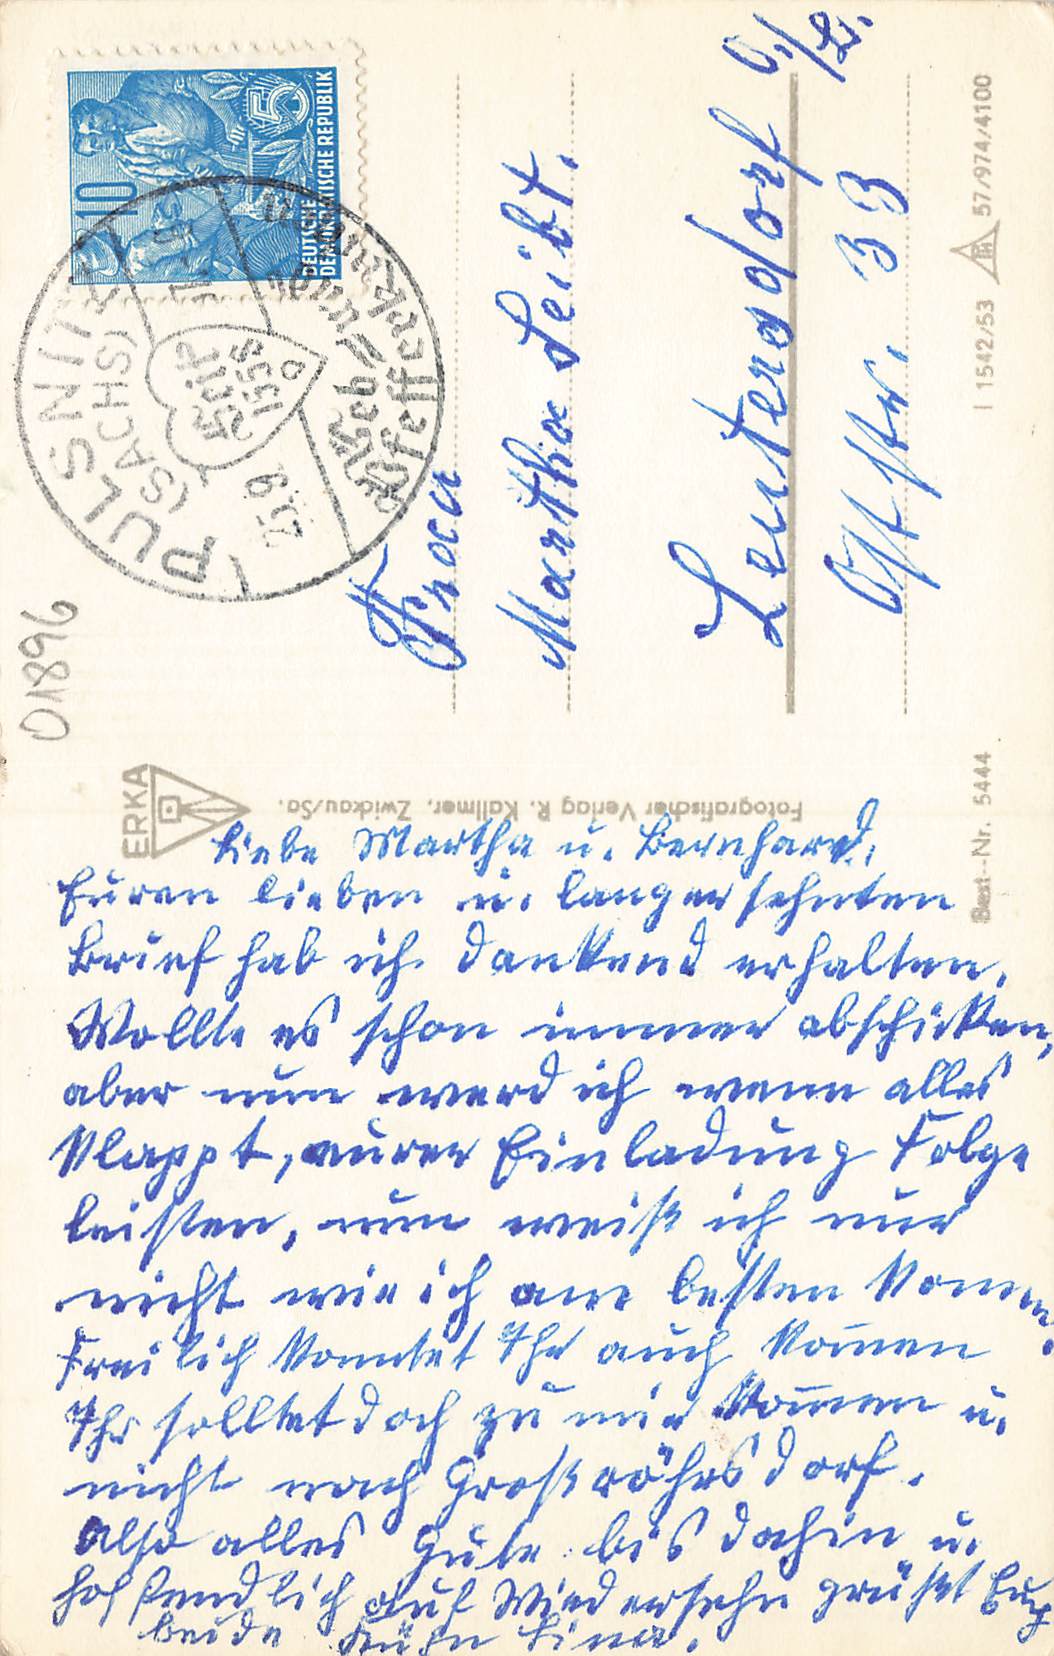 10
5
DEUTSCHE
DEMOKRATISCHE REPUBLIK
PULSNITZ
(SACHS)
Seit
1558
Web= und
Pfefferkuchen
01896
Frau
Martha Seibt.
Leutersdorf O./L.
Oststr. 33
ERKA
Fotografischer Verlag R. Kallmer, Zwickau/Sa.
Best.-Nr. 5444
I 1542/53
57/974/4100
Liebe Martha u. Bernhard.
Euren lieben u. langersehnten
Brief hab ich dankend erhalten.
Wollte es schon immer abschicken,
aber nun werd ich wenn alles
klappt, eurer Einladung Folge
leisten, nun weiß ich nur
nicht wie ich am besten komme.
Freilich konntet Ihr auch kom̅en
Ihr solltet doch zu mir kom̅en u.
nicht nach Großröhrsdorf.
Also alles Gute bis dahin u.
hoffendlich auf Wiedersehn grüßt Euch
beide